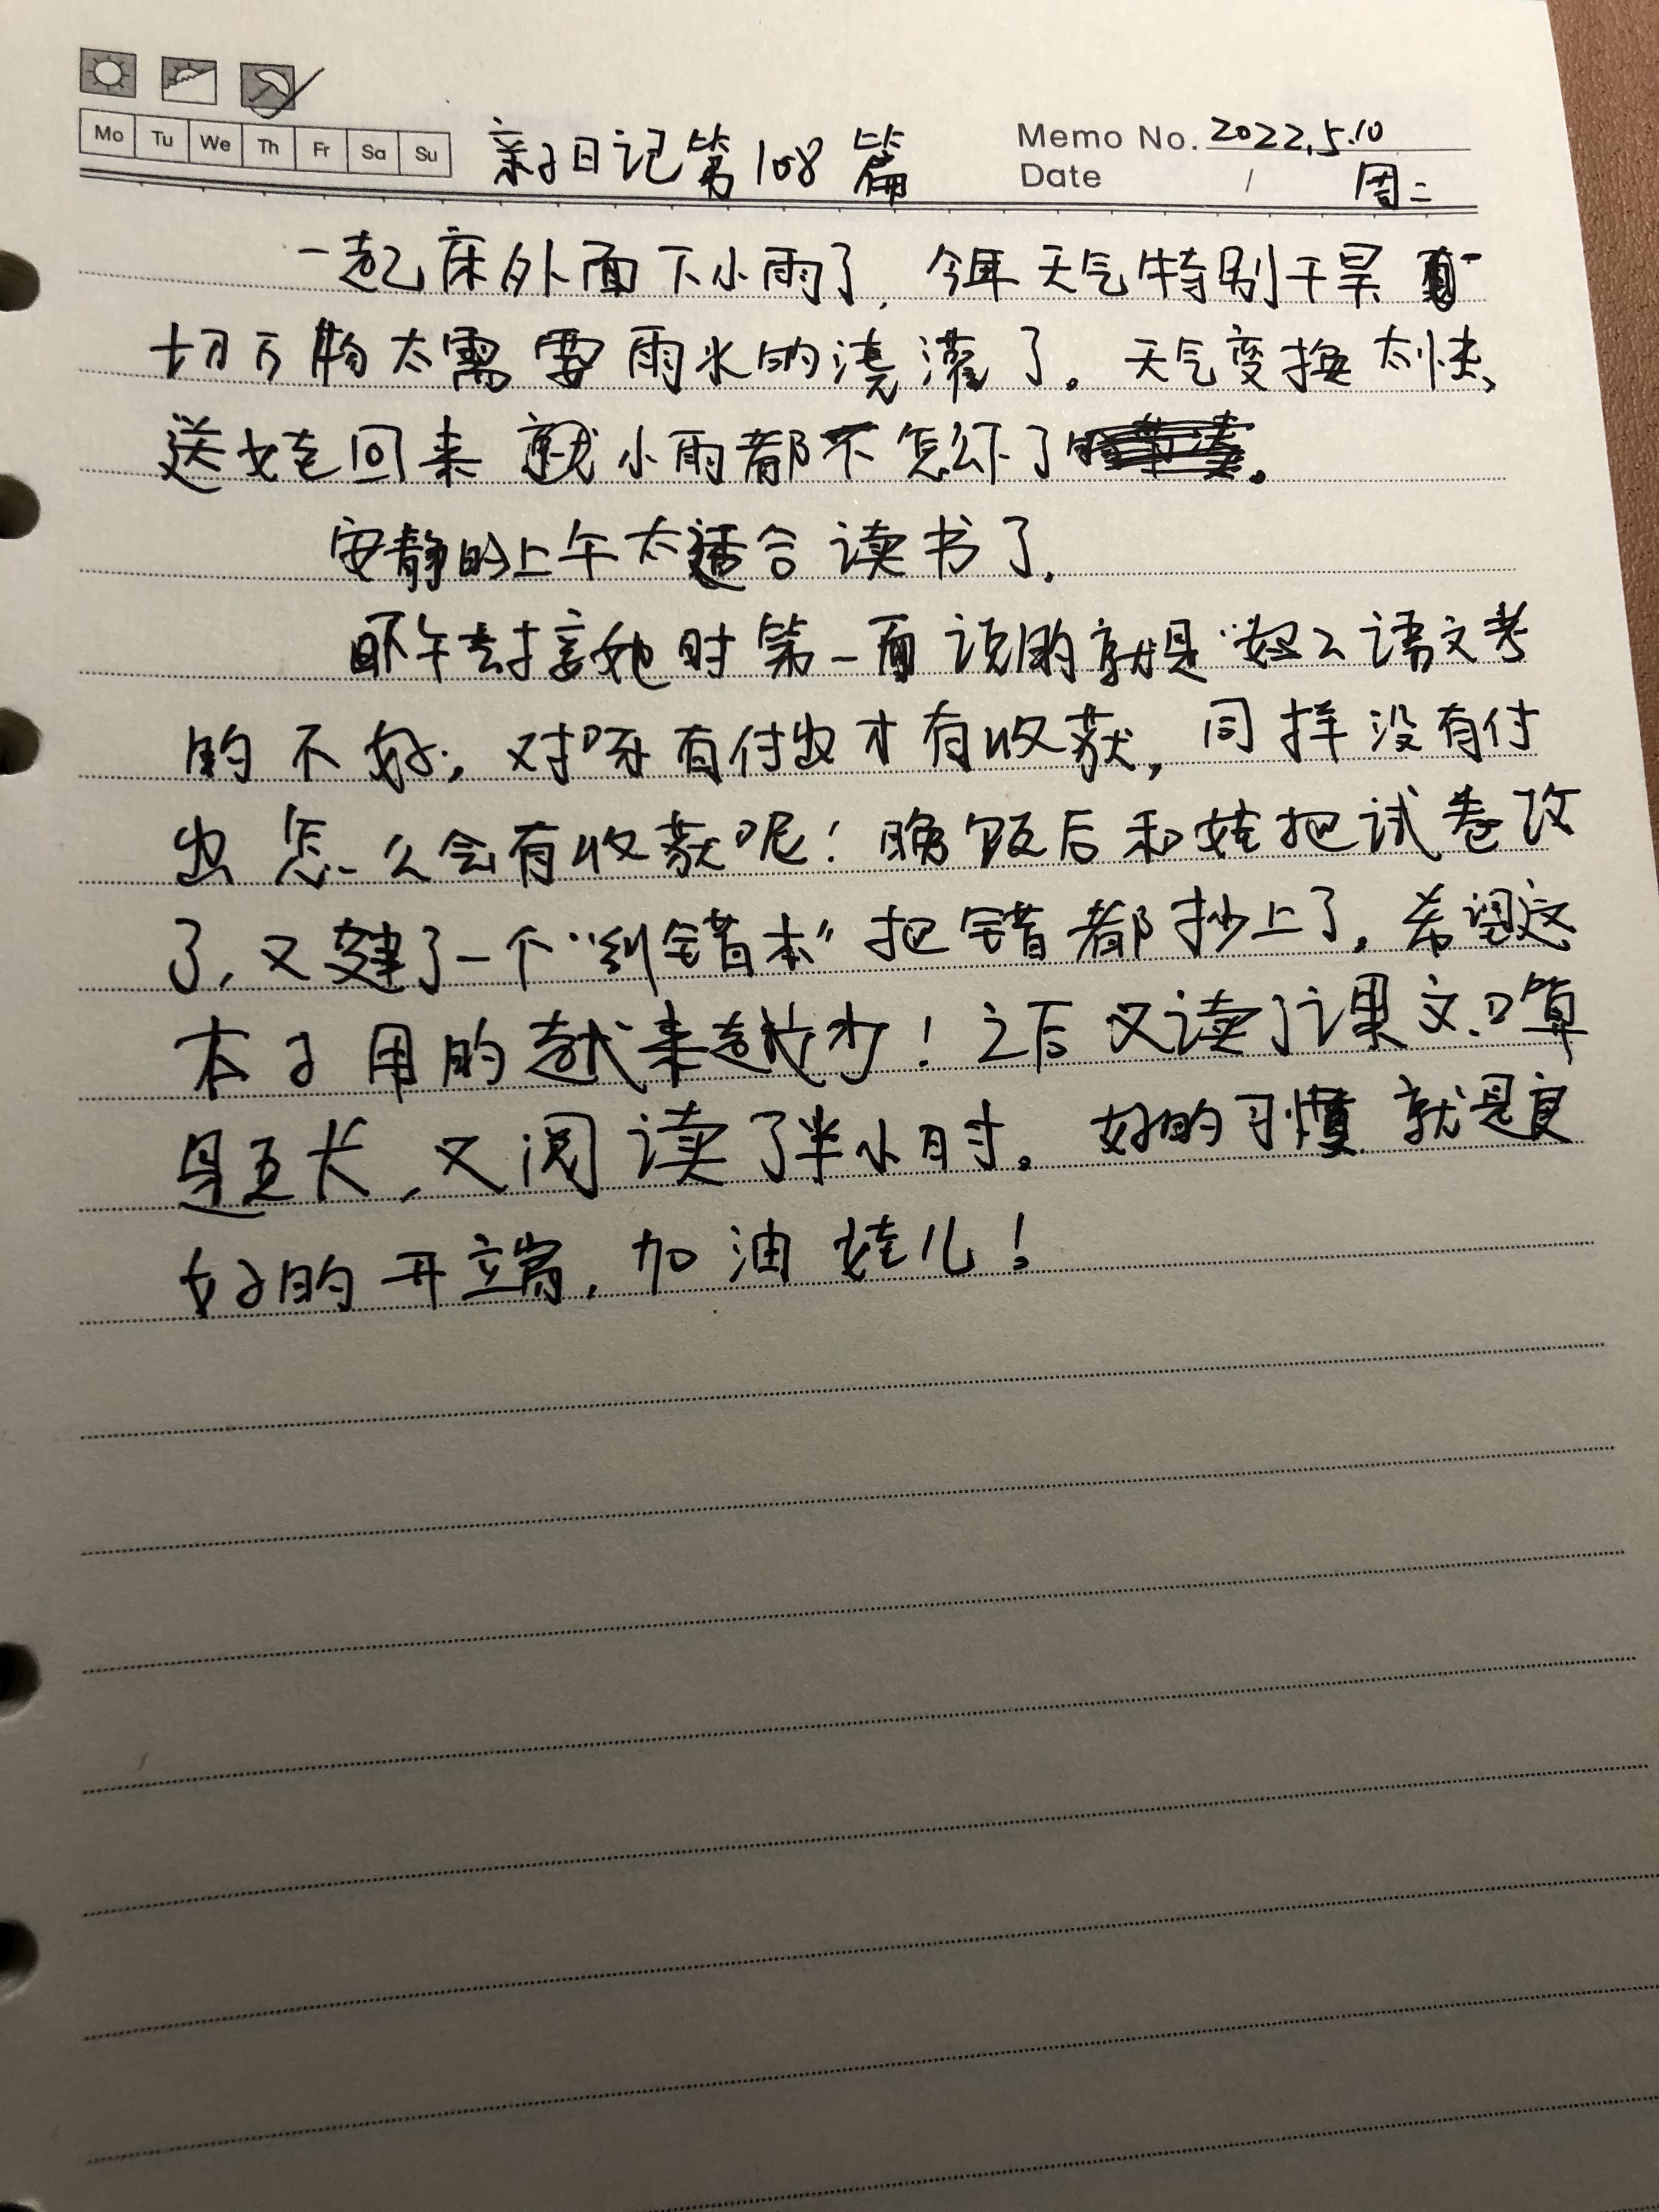 Mo Tu We Th Fr Sa Su
亲子日记第108篇
Memo No. 2022.5.10
Date / 周二
一起床外面下小雨了,今年天气特别干旱 一
切万物太需要雨水的浇灌了。天气变换太快,
送娃回来就小雨都不怎么下了。
安静的上午太适合读书了.
下午去接她时第一面说的就是"妈妈语文考
的不好;对呀有付出才有收获,同样没有付
出怎么会有收获呢!晚饭后和娃把试卷改
了,又建了一个"纠错本"把错都抄上了,希望这
本子用的越来越少!之后又读了课文.口算
是五长,又阅读了半小时。好的习惯就是良
好的开端,加油娃儿!